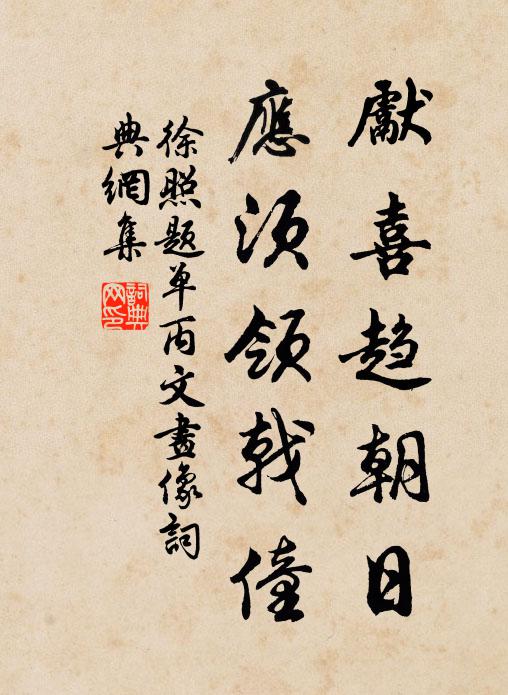 獻喜趨朝日
應須領戟僮
徐照題单丙文畫像詞
典網集
詞典網印